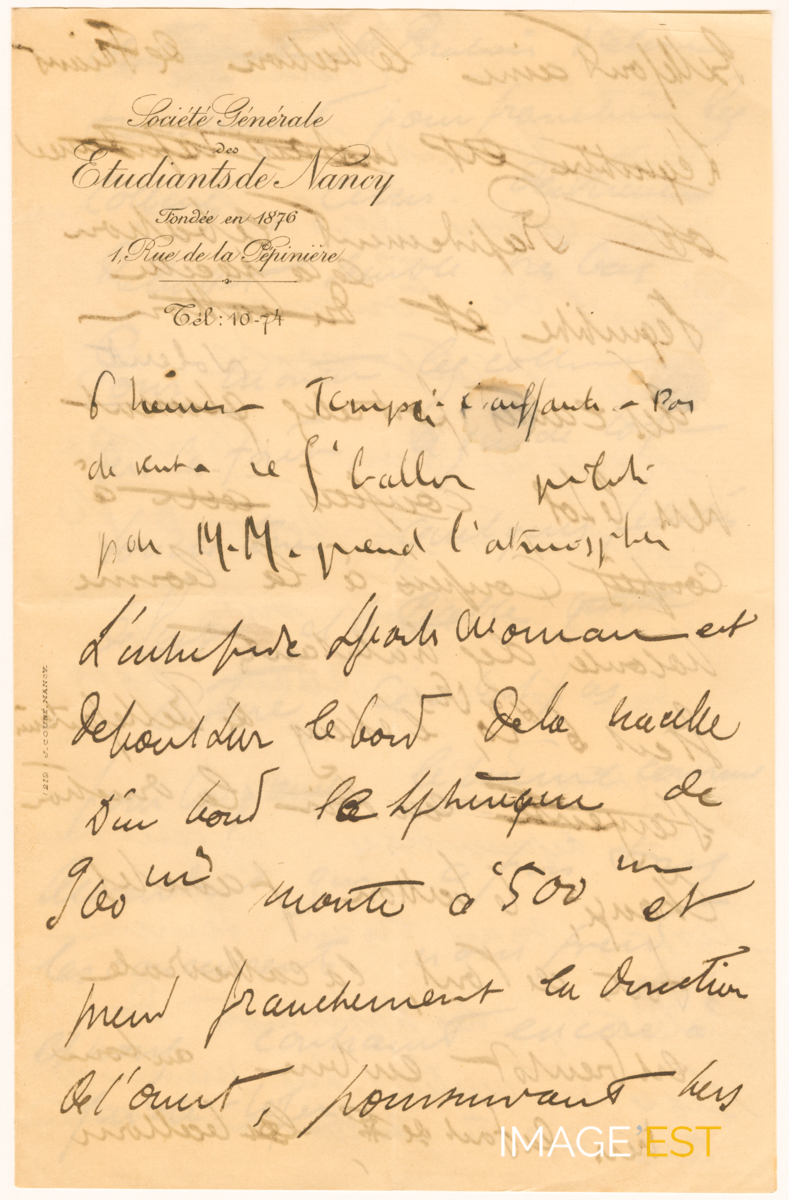 Société Générale
des
Etudiants de Nancy
Fondée en 1876
1, Rue de la Pépinière
Tél: 10-74
6 heures - Temps - Pas
de vent - le ballon piloté
par M.M. prend l'atmosphère
L'intrépide Sports Woman est
debout sur le bord de la nacelle
D'un bond le sphérique de
900 m3 monte à 500 m et
prend franchement la direction
de l'ouest, poursuivant vers
J. COUBÉ, NANCY.
IMAGE'EST